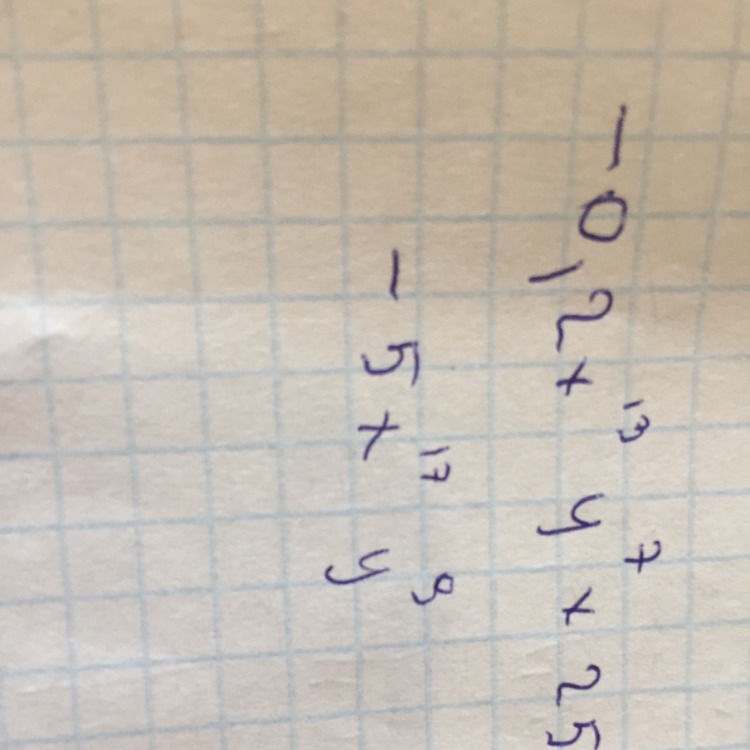 -0,2x¹³ y⁷ x 25
-5x¹⁷ y⁹